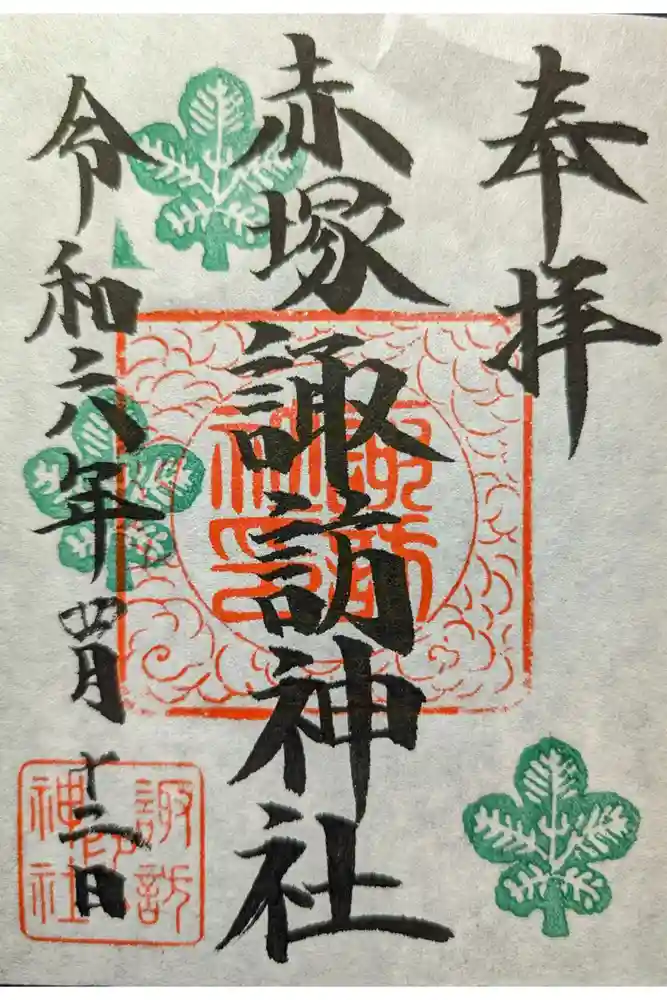 奉拝
赤塚諏訪神社
諏訪
神社
令和六年四月十二日
諏訪
神社